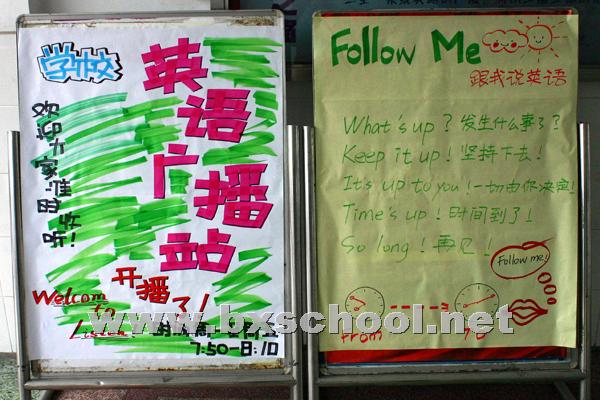 学校
英语广播站
开播了！
Welcom
to
Listen!
7:50-8:10
Follow Me
跟我说英语
What's up? 发生什么事了?
Keep it up! 坚持下去!
It's up to you! 一切由你决定!
Time's up! 时间到了!
So long! 再见!
Follow me!
From
To
www.bxschool.net